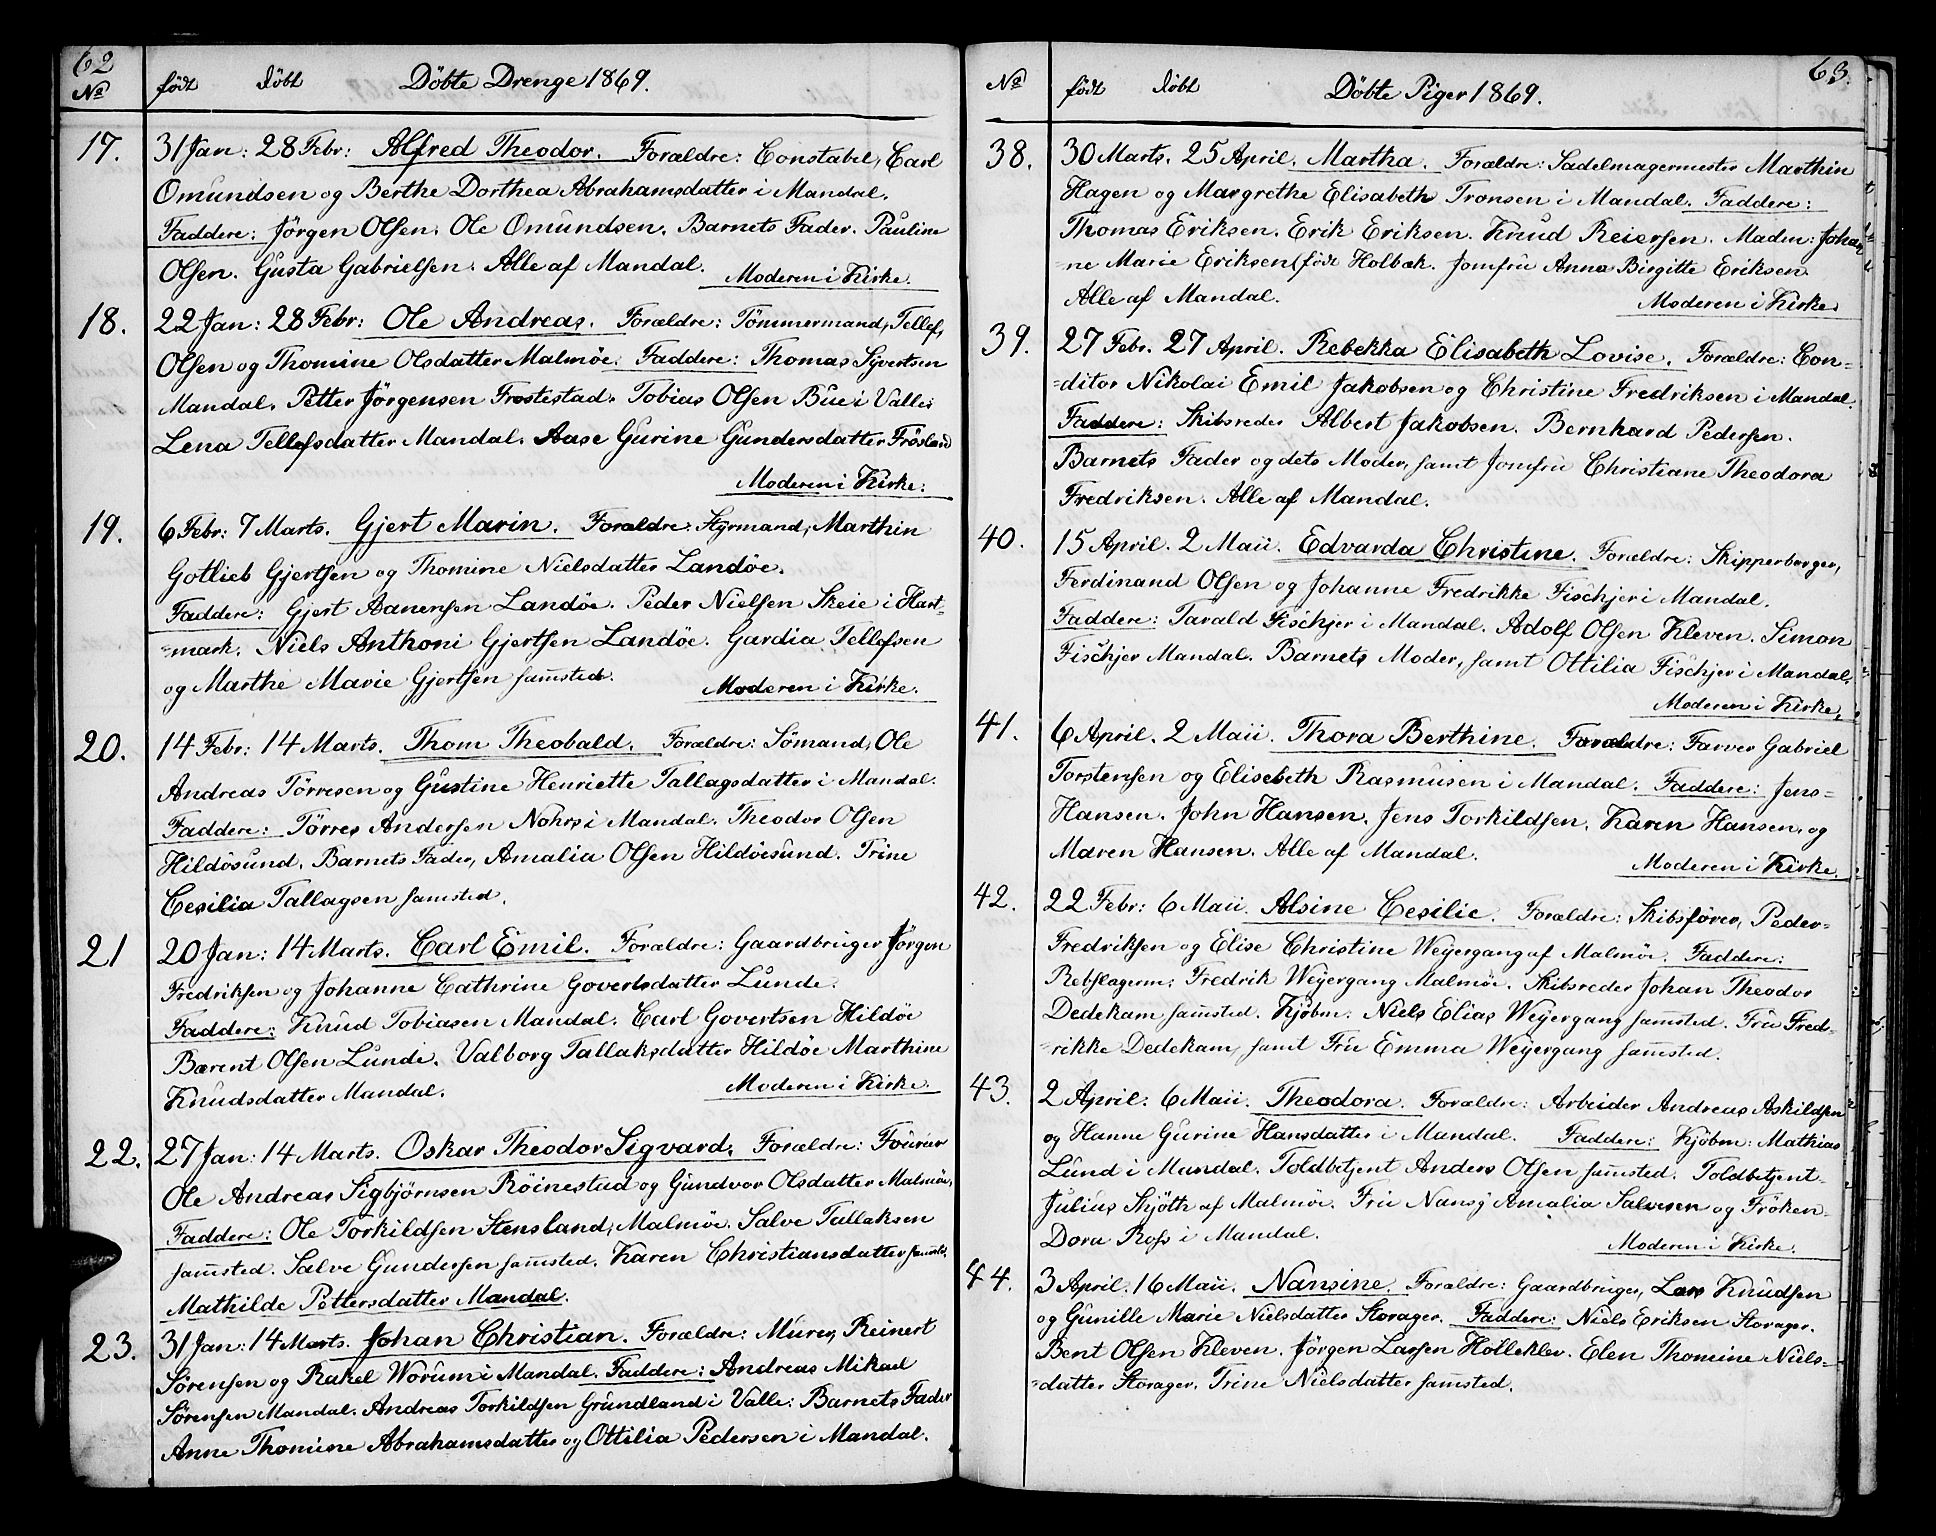 62
No født döbt Döbte Drenge 1869.
17. 31 Jan: 28 Febr: Alfred Theodor. Forældre: Constabel, Carl
Omundsen og Berthe Dorthea Abrahamsdatter i Mandal.
Faddere: Jörgen Olsen. Ole Omundsen. Barnets Fader. Pauline
Olsen. Gusta Gabrielsen. Alle af Mandal. Moderen i Kirke.
18. 22 Jan: 28 Febr: Ole Andreas. Forældre: Tömmermand, Tellef,
Olsen og Thomine Olsdatter Malmöe. Faddere: Thomas Syvertsen
Mandal. Petter Jörgensen Frostestad. Tobias Olsen Bue i Valle:
Lena Tellefsdatter Mandal. Aase Gurine Gundersdatter Frösland
Moderen i Kirke.
19. 6 Febr: 7 Marts. Gjert Marin. Forældre: Styrmand, Marthin
Gotlieb Gjertsen og Thomine Nielsdatter Landöe.
Faddere: Gjert Aanensen Landöe. Peder Nielsen Skeie i Hart-
=mark. Niels Anthoni Gjertsen Landöe. Gurdia Tellefsen
og Marthe Marie Gjertsen samsteds. Moderen i Kirke.
20. 14 Febr: 14 Marts. Thom Theobald. Forældre: Sömand, Ole
Andreas Törresen og Gustine Henriette Tallagsdatter i Mandal.
Faddere: Törres Andersen Nohrs i Mandal. Theodor Olsen
Hildösund. Barnets Fader, Amalia Olsen Hildöesund. Trine
Cesilia Tallagsen samsted.
21 20 Jan: 14 Marts. Carl Emil. Forældre: Gaardbruger Jörgen
Fredriksen og Johanne Cathrine Govertsdatter Lunde.
Faddere: Knud Tobiasen Mandal. Carl Govertsen Hildöe
Bærent Olsen Lunde. Valborg Tallaksdatter Hildöe Marthine
Knudsdatter Mandal. Moderen i Kirke.
22. 27 Jan: 14 Marts. Oskar Theodor Sigvard. Forældre: Fourer
Ole Andreas Sigbjörnsen Röinestad og Gundvor Olsdatter Malmöe,
Faddere: Ole Torkildsen Stensland, Malmöe. Salve Tallaksen
samsted. Salve Gundersen samsted. Karen Christiansdatter samsted.
Mathilde Pettersdatter Mandal.
23. 31 Jan: 14 Marts. Johan Christian. Forældre: Murer, Reinert
Sörensen og Rakel Worum i Mandal. Faddere: Andreas Mikael
Sörensen Mandal. Andreas Torkildsen Grundland i Valle: Barnets Fader
Anne Thomine Abrahamsdatter og Ottilia Pedersen i Mandal.
63.
No født döbt Döbte Piger 1869.
38. 30 Marts. 25 April. Martha. Forældre: Sadelmagermester Marthin
Hagen og Margrethe Elisabeth Tronsen i Mandal. Faddere:
Thomas Eriksen. Erik Eriksen. Knud Reiersen. Madm: Johan-
=ne Marie Eriksen, født Holbæk. Jomfru Anna Birgitte Eriksen.
Alle af Mandal. Moderen i Kirke
39. 27 Febr. 27 April. Rebekka Elisabeth Lovise. Forældre: Con-
=ditor Nikolai Emil Jakobsen og Christine Fredriksen i Mandal.
Faddere: Skibsreder Albert Jakobsen. Bernhard Pedersen.
Barnets Fader og dets Moder, samt Jomfru Christiane Theodora
Fredriksen. Alle af Mandal.
40. 15 April. 2 Maii. Edvarda Christine. Forældre: Skipperborger,
Ferdinand Olsen og Johanne Fredrikke Fischjer i Mandal.
Faddere: Tarald Fischjer i Mandal. Adolf Olsen Kleven. Simon
Fischjer Mandal. Barnets Moder, samt Ottilia Fischjer i Mandal.
Moderen i Kirke.
41. 6 April. 2 Maii. Thora Berthine. Forældre: Farver Gabriel
Torstensen og Elisebeth Rasmusen i Mandal. Faddere: Jens-
Hansen. John Hansen. Jens Torkildsen. Karen Hansen, og
Maren Hansen. Alle af Mandal. Moderen i Kirke.
42. 22 Febr: 6 Maii. Alsine Cesilie. Forældre: Skibsförer, Peder-
Fredriksen og Elise Christine Weyergang af Malmöe. Faddere:
Rebslagerm: Fredrik Weyergang Malmöe. Skibsreder Johan Theodor
Dedekam samsted. Kjøbm: Niels Elias Weyergang samsted. Fru Fred-
=rikke Dedekam, samt Fru Emma Weyergang samsted.
43. 2 April: 6 Maii. Theodora. Forældre: Arbeider Andreas Askildsen
og Hanne Gurine Hansdatter i Mandal. Faddere: Kjöbm: Mathias
Lund i Mandal. Toldbetjent Anders Olsen samsted. Toldbetjent-
Julius Skjöth af Malmöe. Fru Nansy Amalia Salvesen og Fröken-
Dora Ross i Mandal. Moderen i Kirke.
44. 3 April. 16 Maii. Nansine. Forældre: Gaardbruger, Lars Knudsen
og Gunille Marie Nielsdatter Storager. Faddere: Niels Eriksen Storager.
Bent Olsen Kleven. Jörgen Larsen Holleklev. Elen Thomine Niels-
=datter Storager. Trine Nielsdatter samsted.